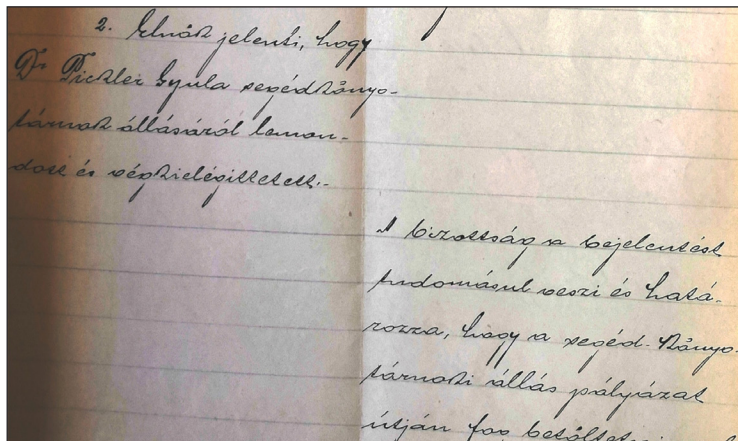 2. Elnök jelenti, hogy
Dr Pickler Gyula segédkönyv-
tárnok állásáról lemon-
dott és végkielégíttetett.-
A bizottság a bejelentést
tudomásul veszi és hatá-
rozza, hogy a segéd-könyv-
tárnoki állás pályázat
útján fog